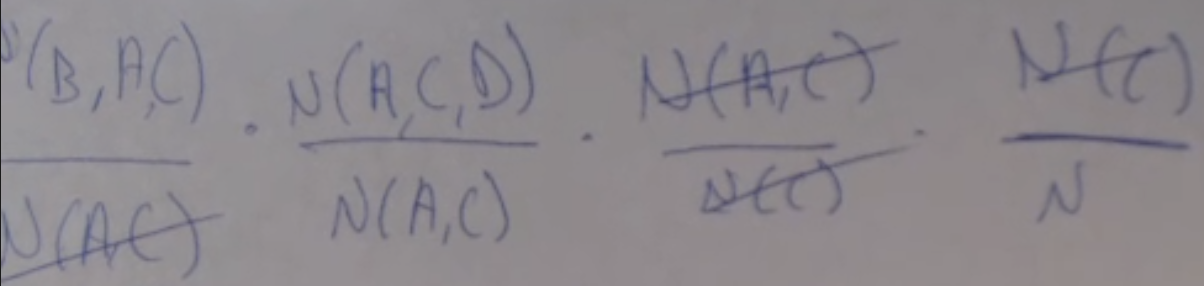 N(B,A,C) . N(A,C,D) . N(A,C) . N(C)
N(A,C) N(A,C) N(C) N